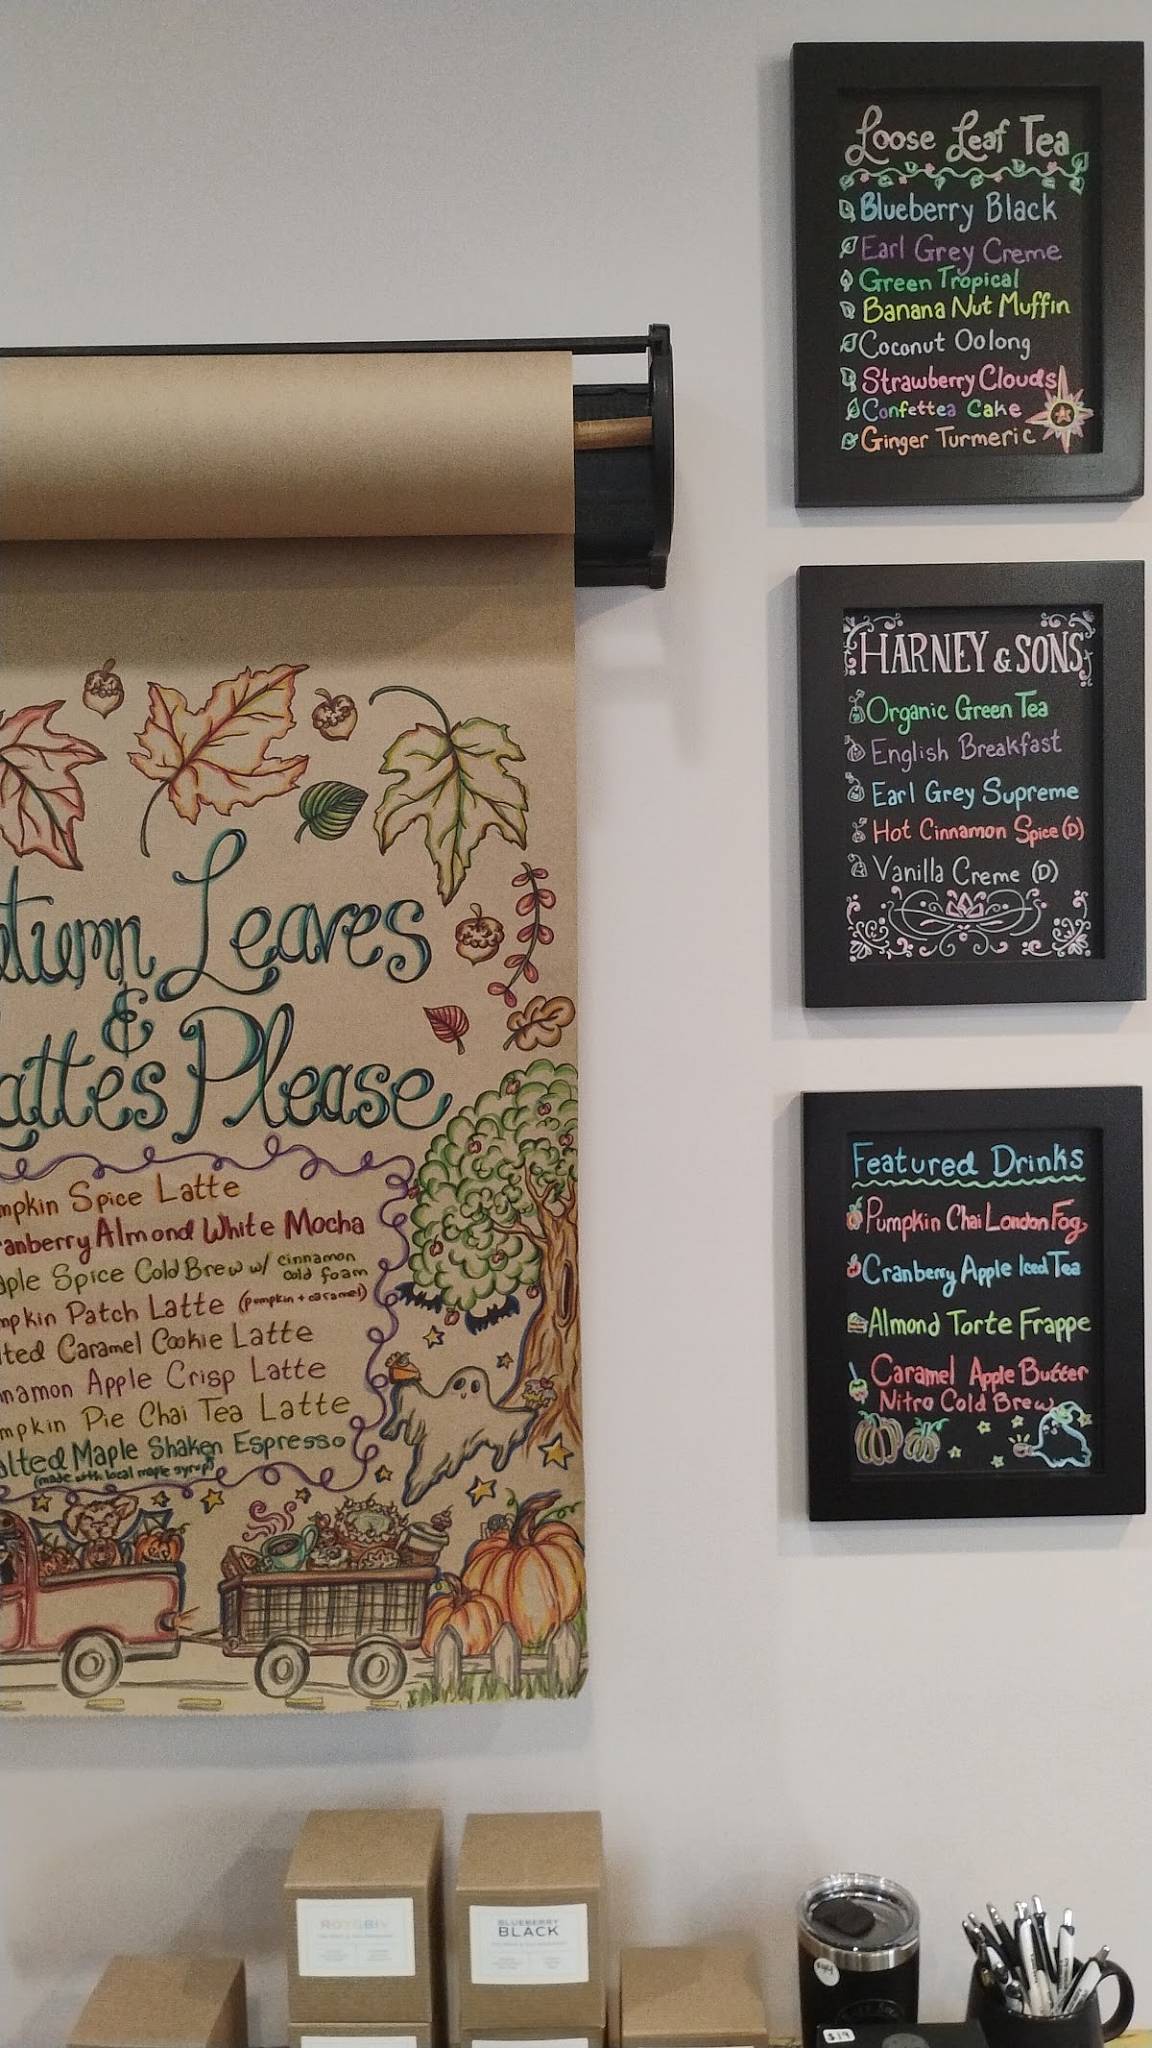 Loose Leaf Tea
Blueberry Black
Earl Grey Creme
Green Tropical
Banana Nut Muffin
Coconut Oolong
Strawberry Clouds
Confettea Cake
Ginger Turmeric
HARNEY & SONS
Organic Green Tea
English Breakfast
Earl Grey Supreme
Hot Cinnamon Spice (D)
Vanilla Creme (D)
Featured Drinks
Pumpkin Chai London Fog
Cranberry Apple Iced Tea
Almond Torte Frappe
Caramel Apple Butter
Nitro Cold Brew
tumn Leaves
&
attes Please
mpkin Spice Latte
anberry Almond White Mocha
aple Spice Cold Brew w/ cinnamon
cold foam
mpkin Patch Latte (pumpkin + caramel)
lted Caramel Cookie Latte
nnamon Apple Crisp Latte
mpkin Pie Chai Tea Latte
alted Maple Shaken Espresso
(made with local maple syrup)
ROYGBIV
BLUEBERRY
BLACK
$44
$19